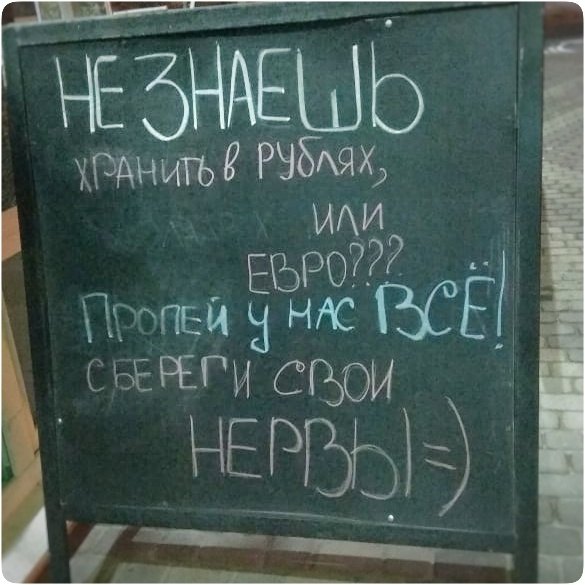 НЕ ЗНАЕШЬ
ХРАНИТЬ В РУБЛЯХ,
ИЛИ
ЕВРО???
ПРОПЕЙ У НАС ВСЁ!
СБЕРЕГИ СВОИ
НЕРВЫ =)